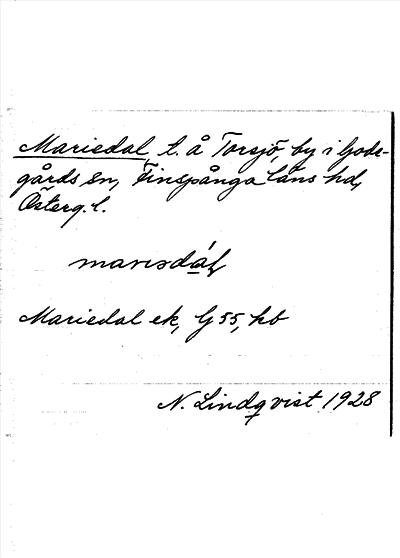 Mariedal, t. å Torsjö, by i Gode-
gårds sn, Finspånga läns hd,
Österg. l.
Mariedal ek, G 55, hb
N. Lindqvist 1928